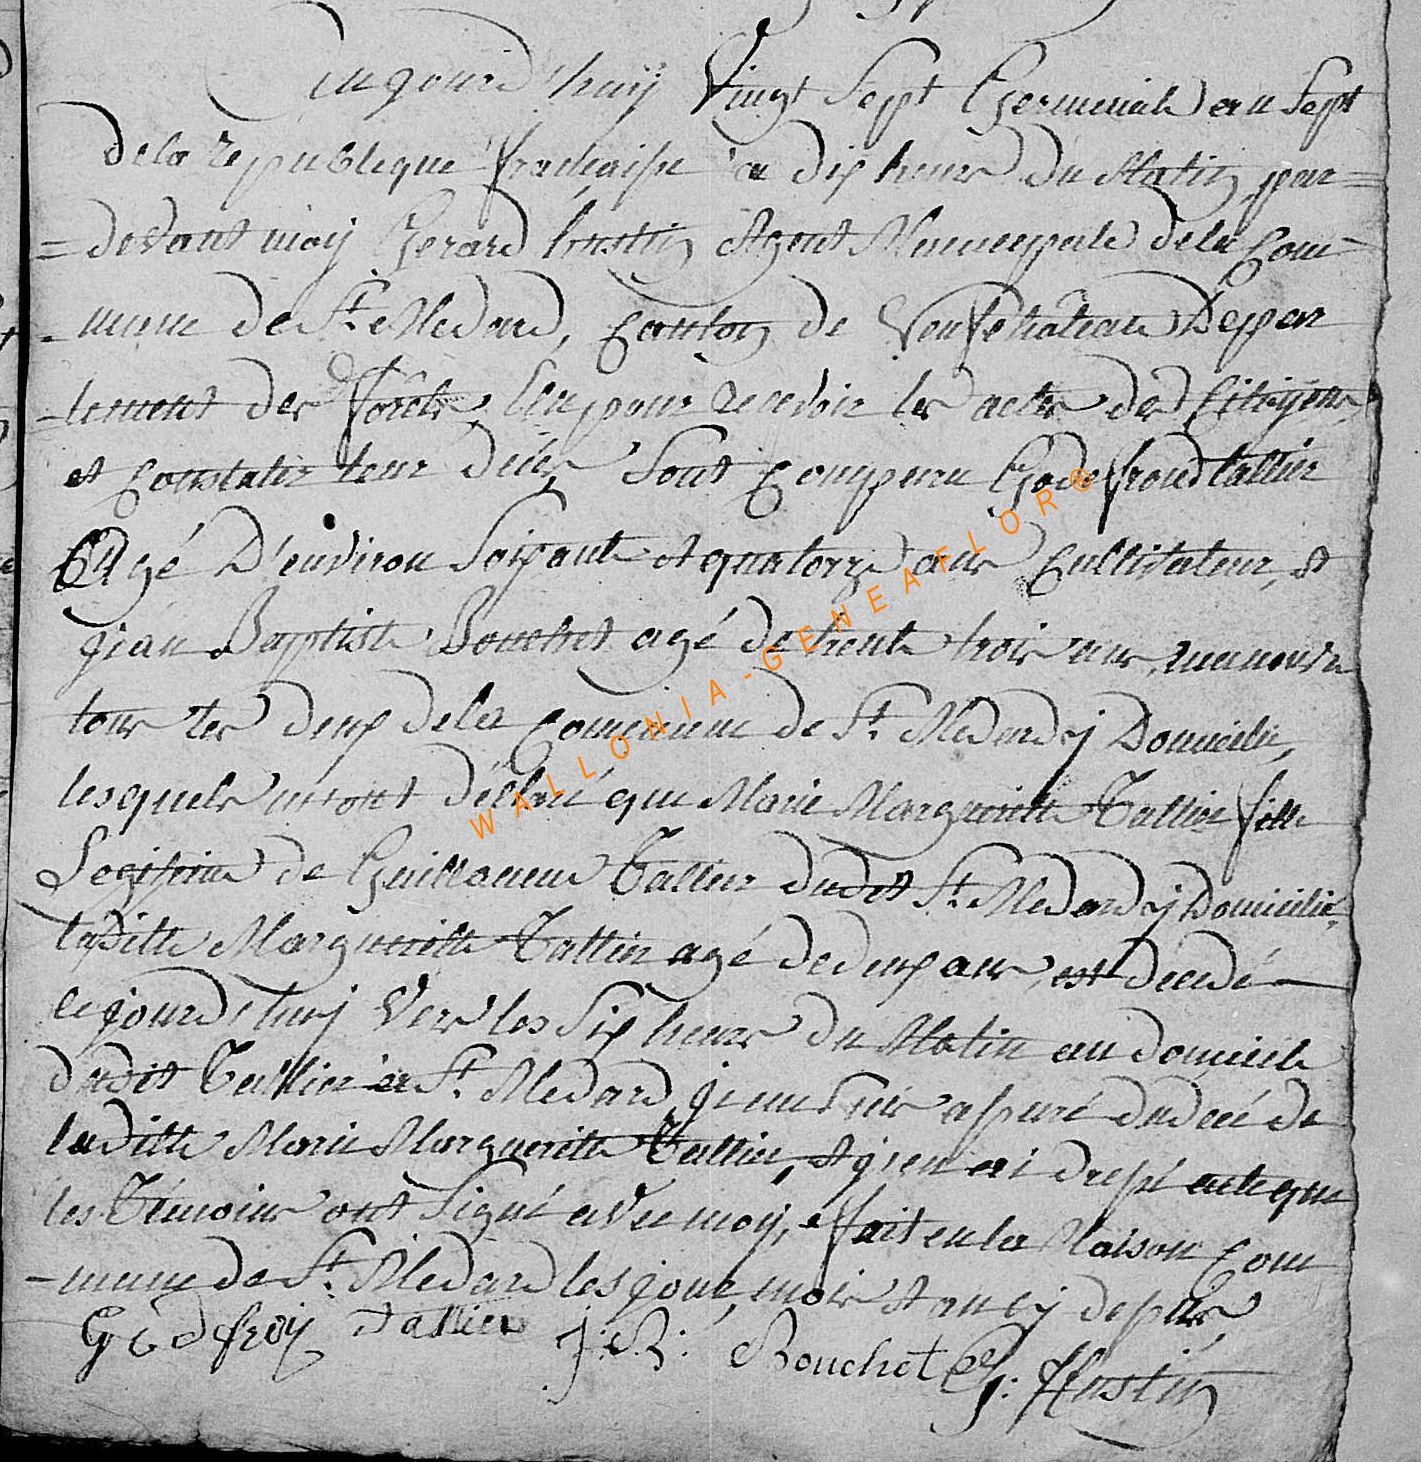 aujourd'huij Vingt Sept Germinale an Sept
de la republique francaise a dix heure du Matin, par=
=devant moij Gerard hustin Agent Municipale de la Com-
=mune de St. Medard, Canton de Neufchateau Depar
=tement des forêts, Elu pour recevoir les actes des Citoyens
et Constater leur décès Sont Comparu Godefroid tallier
Agé D'environ Soixante et quatorze ans Cultivateur, et
jean Baptiste Bouchet agé de trente trois ans, manouvre
tous les deux de la Commune de St. Medard ÿ Domicilie,
lesquels m'ont déclaré que Marie Margueritte Tallier fille
Legitime de Guillaeume Tallier dudit St. Medard ÿ Domicilié,
laditte Margueritte Tallier agé de deux ans, est decedé
cejourd'huij Vers les Six heure du Matin au domicile
dudit Tallier a St. Medard, je me suis assuré du decé de
laditte Marie Margueritte Tallier, et j'en ai dressé acte que
les Témoins ont Signé avec moij, fait en la Maison Com
-mune de St. Medard les jour, mois et an cÿ dessus,
Godfroij Tallier J: B: Bouchet G: Hustin
WALLONIA-GENEAFLOR®